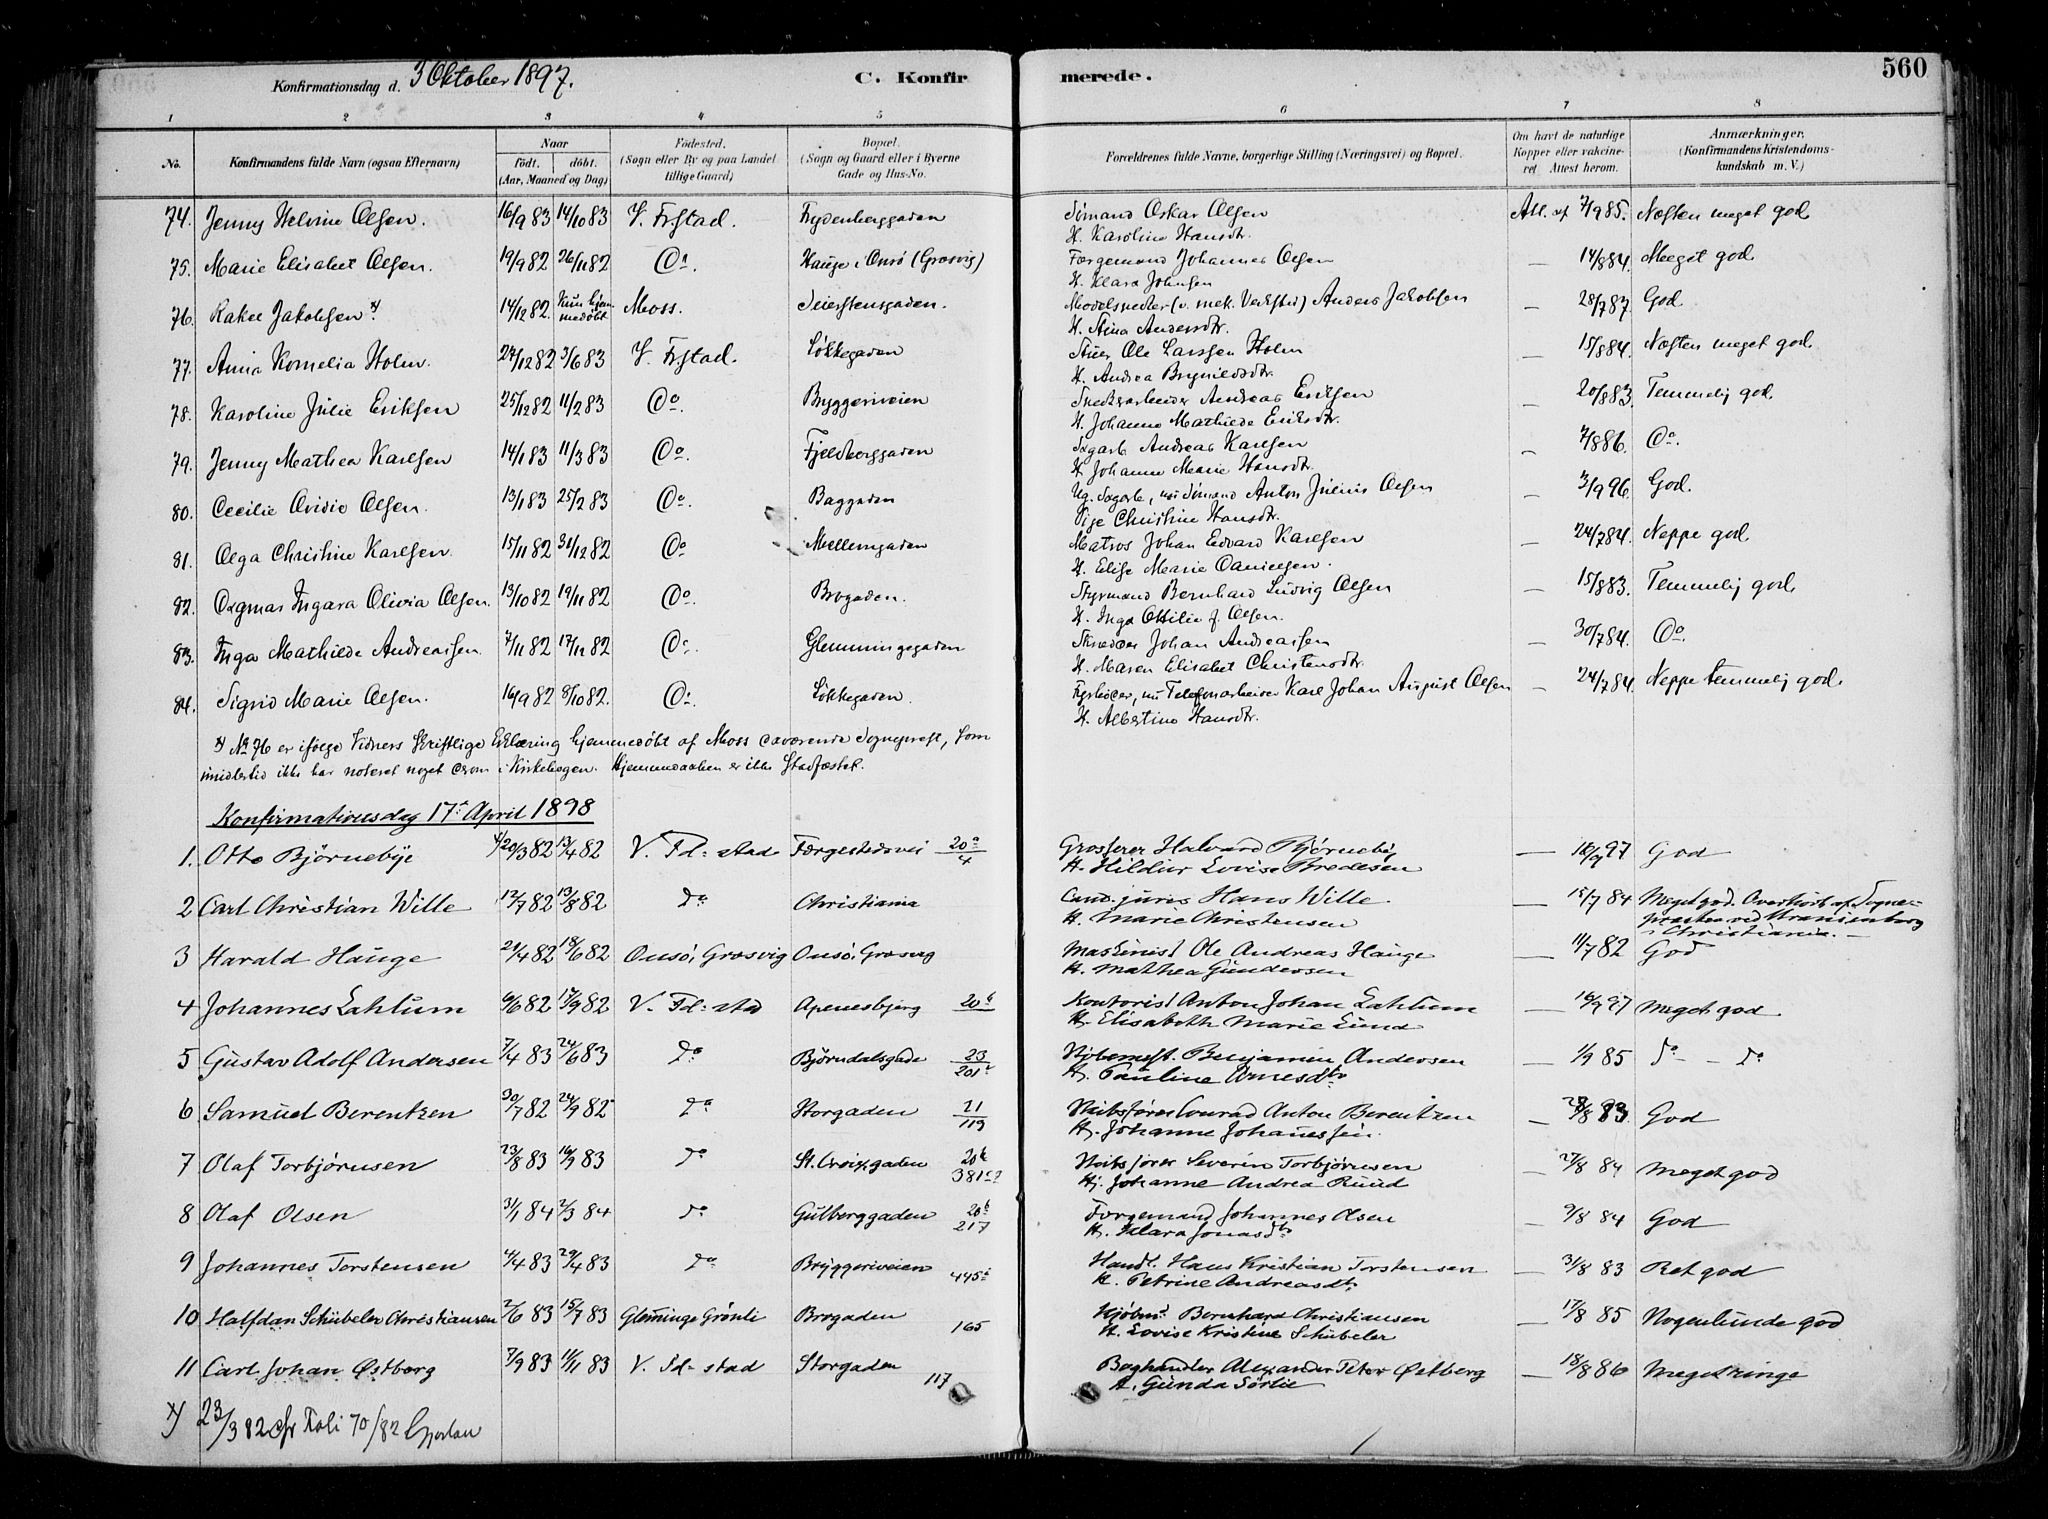 Konfirmationsdag d. 3 Oktober 1897.
C. Konfirmerede.
560
1 2 3 4 5 6 7 8
No. Konfirmandens fulde Navn (ogsaa Efternavn) Naar født, døbt. (Aar, Maaned og Dag) Fødested. (Sogn eller By og paa Landet tillige Gaard) Bopæl. (Sogn og Gaard eller i Byerne Gade og Hus-No. Forældrenes fulde Navne, borgerlige Stilling (Næringsvei) og Bopæl. Om havt de naturlige Kopper eller vaccineret Attest herom. Anmærkninger, (Konfirmandens Kristendomskundskab m. V.)
74. Jenny Helvine Olsen. 16/9 83 14/10 83 V. Frstad. Frydenberggaden Sømand Oskar Olsen Att. af 7/9 85. Næsten meget god
H. Karoline Hansdtr.
75. Marie Elisabet Olsen. 19/9 82 26/11 82 Do Hauge i Onsø (Græsvig) Færgemand Johannes Olsen — 14/8 84. Meget god
H. Klara Johnsen
76. Rakel Jakobsen x) 14/12 82. Kun hjemmedøbt. Moss. Seierstensgaden. Modelsnedker (v. mek. Verksted) Anders Jakobsen — 28/7 87. God
H. Stina Andersdtr.
77. Anna Kornelia Holm. 27/12 82 3/6 83 V. Frstad. Løkkegaden Stuer Ole Larssen Holm — 15/8 84. Næsten meget god
H. Andrea Brynildsdtr.
78. Karoline Julie Eriksen 25/12 82 11/2 83 Do. Bryggeriveien Snedkerarbeider Andreas Eriksen — 20/8 83. Temmelig god
H. Johanne Mathilde Eriksdtr.
79. Jenny Mathea Karlsen 14/1 83 11/3 83 Do. Fjeldberggaden Sagarb. Andreas Karlsen — 7/8 86. Do.
H Johanne Marie Hansdtr.
80. Cecilie Ovidie Olsen. 13/1 83 25/2 83 Do. Baggaden Ug. Sagarb., nu Sømand Anton Julius Olsen — 3/9 96. God.
Pige Christine Hansdtr.
81. Olga Christine Karlsen. 15/11 82 31/12 82 Do Mellemgaden Matros Johan Edvard Karlsen — 24/7 84. Neppe god
H. Elise Marie Danielsen.
82. Dagmar Ingara Olivia Olsen. 13/10 82 19/11 82 Do. Brogaden. Styrmand Bernhard Ludvig Olsen — 15/8 83. Temmelig god
H. Inga Ottilie f. Olsen.
83. Inga Mathilde Andreassen. 7/11 82 17/12 82 Do. Glemmingegaden Skrædder Johan Andreassen — 30/7 84. Do.
H. Maren Elisabet Christensdtr.
84. Sigrid Marie Olsen. 16/9 82 8/10 82. Do. Løkkegaden. Fyrbøder, nu Telefonarbeider Karl Johan August Olsen — 24/7 84. Neppe temmelig god.
H. Albertine Hansdtr.
x) No 76 er ifølge Vidners skriftlige Erklæring hjemmedøbt af Moss daværende Sogneprest, som
imidlertid ikke har noteret noget derom i Kirkebogen. Hjemmedaaben er ikke stadfæstet.
Konfirmationsdag 17de April 1898
1. Otto Bjørnebye x) 20/3 82 13/4 82 V. Fd=stad Færgestedsvei 20a/4 Grosserer Halvard Bjørneby — 16/9 97 God
H. Hildur Lovise Bredesen
2 Carl Christian Wille 12/7 82 13/8 82 do Christiania Cand. juris Hans Wille — 15/7 84 Meget god. Overhørt af Sogne=
H. Marie Christensen presten ved Uranienborg
i Christiania. —
3 Harald Hauge 21/4 82 18/6 82 Onsö, Græsvig Onsö, Græsvig Maskinist Ole Andreas Hauge — 11/7 82 God
H. Mathea Gundersen
4 Johannes Lahlum 6/6 82 17/9 82 V. Fd=stad Apenesbjerg 20b Kontorist Anton Johan Lahlum — 16/9 97 Meget god
H. Elisabeth Marie Lund
5 Gustav Adolf Andersen 7/4 83 24/6 83 do Björndalsgade 23/201 Kjøbmst. Benjamin Andersen — 1/9 85 do — do
H. Pauline Arnesdtr
6 Samuel Berentzen 30/7 82 24/9 82 do Storgaden 21/119 Skibsfører Conrad Anton Berentzen — 28/8 83. God
H. Johanne Johannessen.
7 Olaf Torbjørnsen 23/8 83 16/9 83 do St. Croixgaden 20b/381 Skibsfører Severin Torbjørnsen — 27/8 84 Meget god
Hj. Johanne Andrea Ruud
8 Olaf Olsen 31/1 84 2/3 84 do Gulberggaden 20b/217 Færgemand Johannes Olsen — 9/8 84 God
H. Klara Jonasdtr
9 Johannes Torstensen 4/4 83 29/4 83 do Bryggeriveien 445 Handl. Hans Kristian Torstensen — 31/8 83 Ret god
H. Petrine Andreasdtr
10 Halfdan Schübeler Christiansen 2/6 83 15/7 83 Glemminge Grönli Brogaden 165 Kjøbmd Bernhard Christiansen — 17/8 85 Nogenlunde god
H. Lovise Kristine Schübeler
11 Carl Johan Østberg 7/9 83 11/11 83 V. Fd=stad Storgaden 117 Boghandler Alexander Peter Østberg — 18/8 86 Meget ringe
H. Gunda Sörlie
x) 23/3 82 cfr 70/82